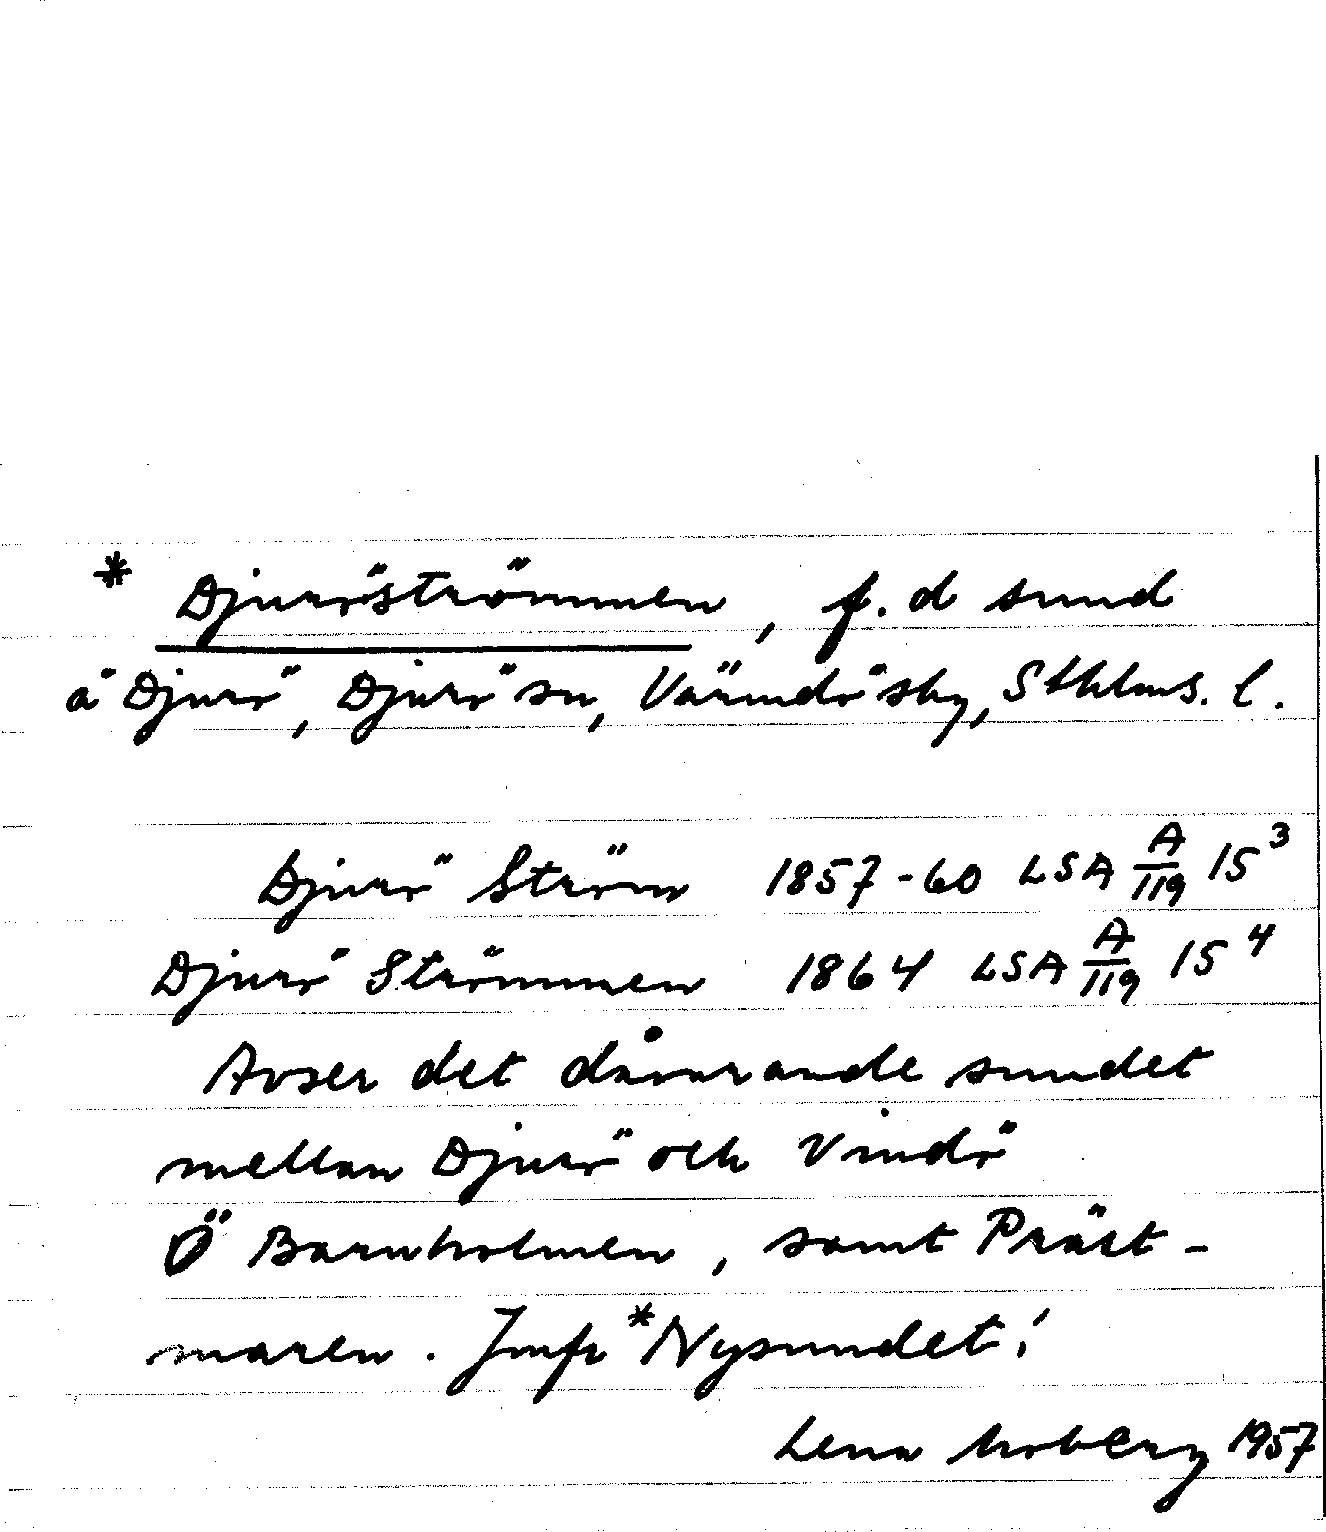 * Djuröströmmen, f.d sund
å Djurö, Djurö sn, Värmdö sky, Sthlms. l.
Djurö Ström 1857-60 LSA A/119 15³
Djurö Strömmen 1864 LSA A/119 15⁴
Avser det dåvarande sundet
mellan Djurö och Vindö
Ö Barnholmen, samt Präst-
maren. Jmfr *Nysundet!
Lena Moberg 1957